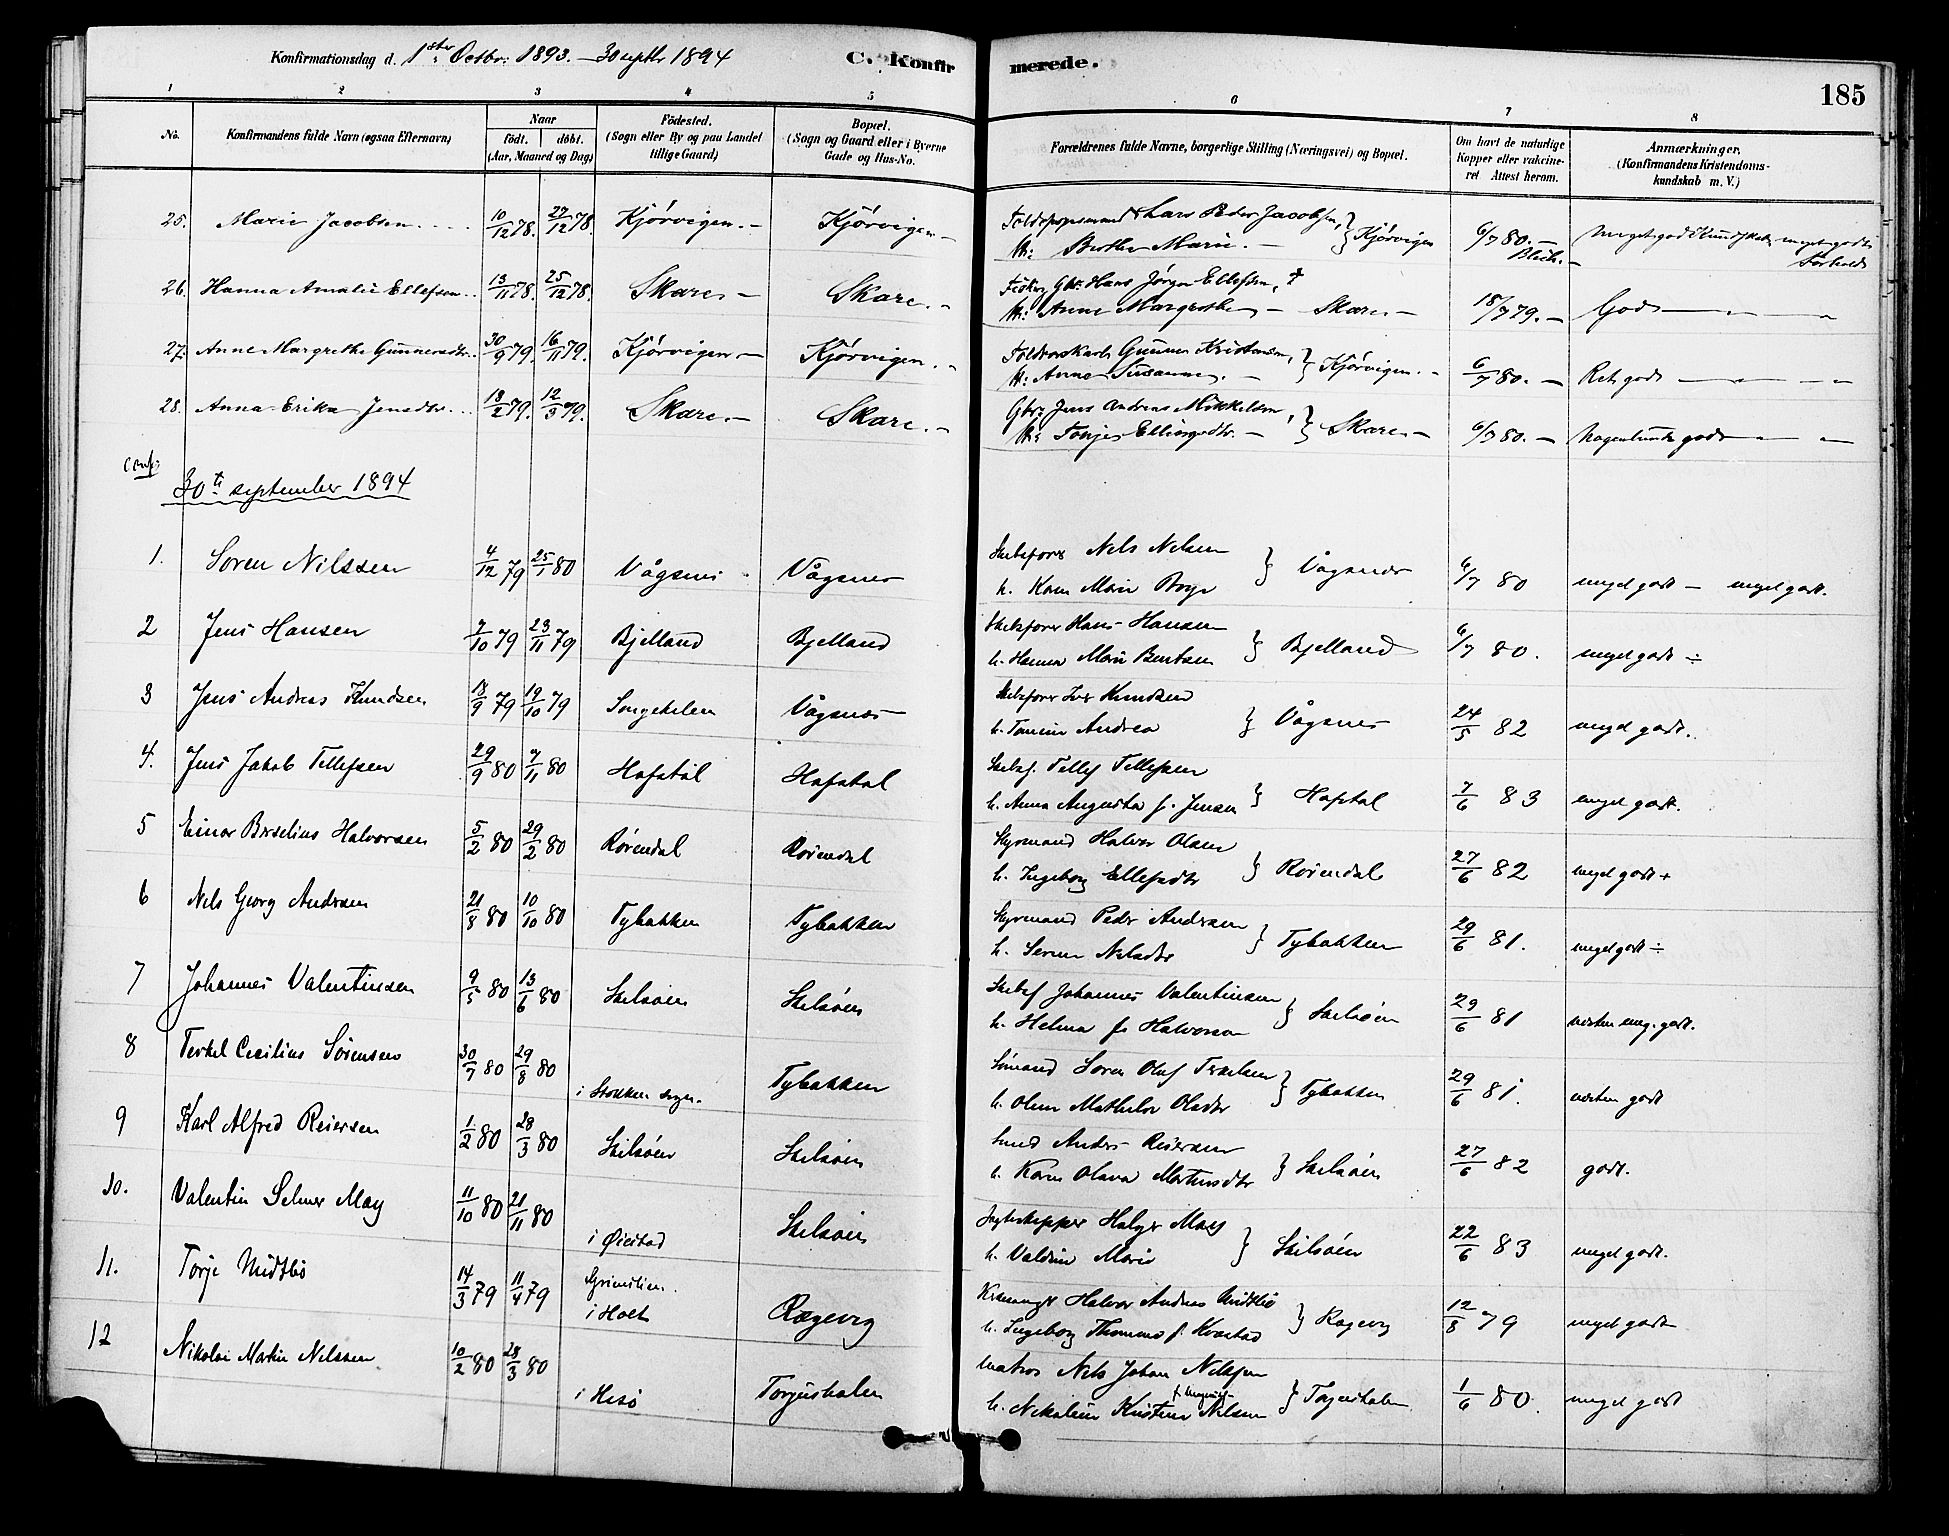 Konfirmationsdag d. 1ste Octbr: 1893. — 30 septbr 1894 C. Konfirmerede. 185
1 2 3 4 5 6 7 8
No. Konfirmandens fulde Navn (ogsaa Efternavn) Naar født. døbt. (Aar, Maaned og Dag)
Fødested. (Sogn eller By og paa Landet tillige Gaard)
Bopæl. (Sogn og Gaard eller i Byerne Gade og Hus-No.
Forældrenes fulde Navne, borgerlige Stilling (Næringsvei) og Bopæl.
Om havt de naturlige Kopper eller vakcineret Attest herom.
Anmærkninger, (Konfirmandens Kristendomskundskab m. V.)
25. Marie Jacobsen 10/12 78. 27/12 78. Kjørvigen. — Kjørvigen — Lars Peder Jacobsen, } Kjørvigen 6/7 80. —
H: Berthe Marie. —
26. Hanna Amalie Ellefsen 13/11 78. 25/12 78. Skare — Skare. — Gbr: Hans Jørgen Ellefsen, † 18/7 79. — Godt
H: Anne Margrethe — Skare. —
27. Anne Margrethe Gunnersdtr. 30/9 79. 16/11 79. Kjørvigen — Kjørvigen. — Gunner Kristensen, } Kjørvigen. — 6/7 80. — Ret godt
H: Anne Susanne. —
28. Anna Erika Jensdtr. 18/2 79. 12/3 79. Skare. — Skare. — Gbr: Jens Andreas Mikkelsen, } Skare — 6/7 80. — nogenlunde godt
H: Tonje Ellingsdtr. —
Conf:
30te september 1894
1. Soren Nilssen 4/12 79 25/1 80 Vågsnes Vågsnes Skibsfører Nels Nelsen } Vågsnes 6/7 80 meget godt — meget godt.
h. Karen Marie Boye
2 Jens Hansen 7/10 79 23/11 79 Bjelland Bjelland Skibsfører Hans Hansen } Bjelland 6/7 80. meget godt ÷
h. Hanna Marie Bentsen
3 Jens Andreas Knudsen 18/9 79 19/10 79 Songekilen Vågsnes Skibsfører Iver Knudsen } Vågsnes 24/5 82 meget godt.
h. Tomine Andrea
4. Jens Jakob Tellefsen 29/9 80 7/11 80 Hofstøl Hafstøl Skibsf. Tellef Tellefsen } Hafstøl 7/6 83 meget godt.
h. Anna Augusta f. Jensen
5 Einar Berselius Halvorsen 5/2 80 29/2 80 Rørendal Rørendal Styrmand Halvor Olsen } Rørendal 27/6 82 meget godt +
h. Ingeborg Ellefsdtr
6 Nels Georg Andersen 21/8 80 10/10 80 Tybakken Tybakken Styrmand Peder Andersen } Tybakken 29/6 81. meget godt ÷
h. Serine Nelsdtr
7 Johannes Valentinsen 9/5 80 13/6 80 Skilsøen Skilsøen Skibsf Johannes Valentinsen } Skilsøen 29/6 81 næsten meg. godt.
h. Helena f. Halvorsen
8 Terkel Cecilius Sørensen 30/7 80 29/8 80 i Stokken sogn. Tybakken Sømand Soren Oluf Terkelsen } Tybakken 29/6 81. næsten godt
h. Oline Mathilde Olsdtr
9 Karl Alfred Reiersen 1/2 80 28/3 80 Skilsøen Skilsøen Smed Anders Reiersen } Skilsøen 27/6 82 godt.
h. Karen Olava Mortensdtr
10. Valentin Selmer May 11/10 80 21/11 80 i Øiestad Skilsøen Jagtskipper Holger May } Skilsøen 22/6 83 meget godt.
h. Valdine Marie
11. Torje Midtbø 14/3 79 11/4 79 i Holt Ragevig Halvor Andreas Midtbø } Ragevig 12/8 79 meget godt
h. Ingeborg Thomine f. Kvastad
12 Nikolai Martin Nelssen 10/2 80 28/3 80 i Hisø Torjusholm Matros Nels Johan Nelssen } Torjusholm 1/6 80. meget godt
h. Nikoline Kristine Nilsen